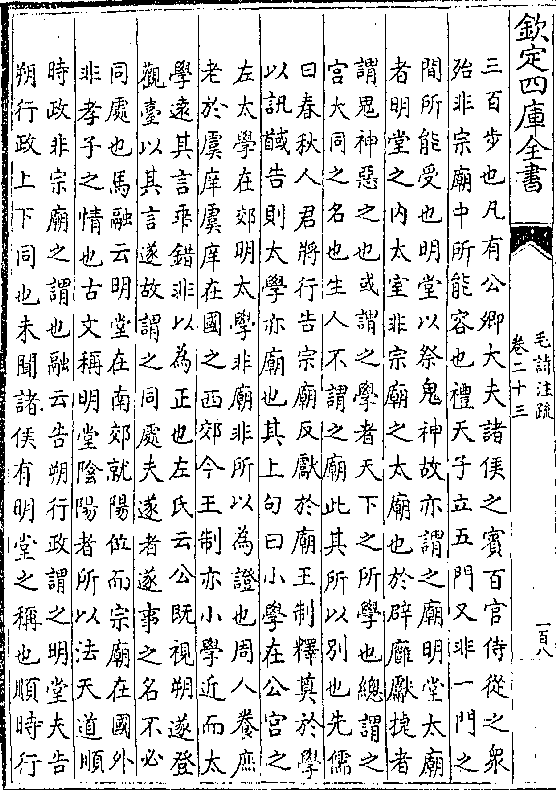 欽定四庫全書
毛詩注疏
卷二十三
一百八
三百步也凡有公卿大夫諸侯之賓百官侍從之衆
殆非宗廟中所能容也禮天子立五門又非一門之
間所能受也明堂以祭鬼神故亦謂之廟明堂太廟
者明堂之内太室非宗廟之太廟也於辟廱獻捷者
謂鬼神惡之也或謂之學者天下之所學也總謂之
宫大同之名也生人不謂之廟此其所以别也先儒
曰春秋人君將行告宗廟反獻於廟王制釋奠於學
以訊馘告則太學亦廟也其上句曰小學在公宫之
左太學在郊明太學非廟非所以為證也周人養庶
老於虞庠虞庠在國之西郊今王制亦小學近而太
學逺其言乖錯非以為正也左氏云公既視朔遂登
觀臺以其言遂故謂之同處夫遂者遂事之名不必
同處也馬融云明堂在南郊就陽位而宗廟在國外
非孝子之情也古文稱明堂隂陽者所以法天道順
時政非宗廟之謂也融云告朔行政謂之明堂夫告
朔行政上下同也未聞諸侯有明堂之稱也順時行